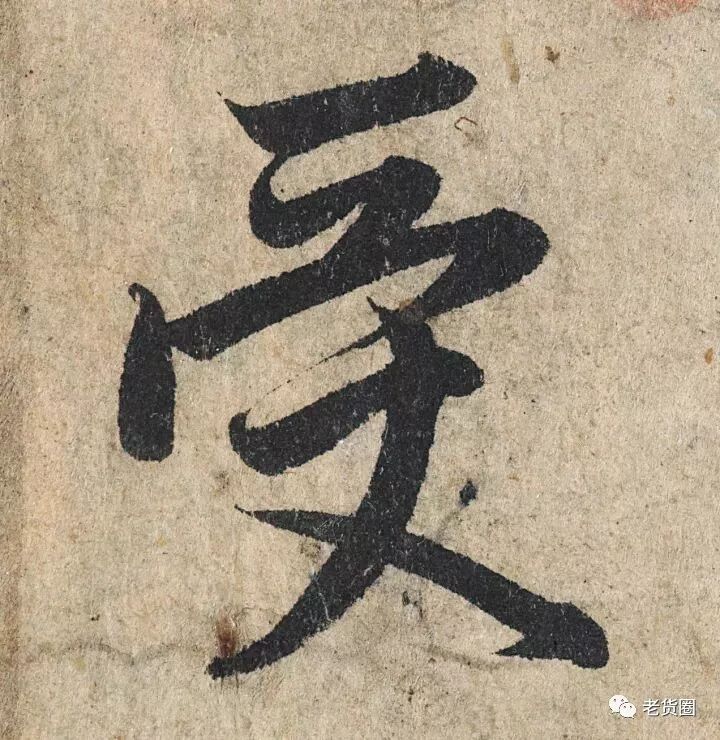 受
老货圈